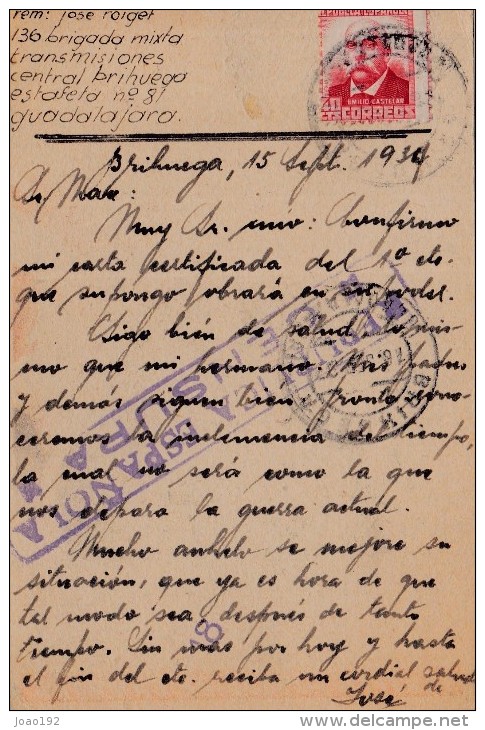 rem: josé roiget
136 brigada mixta
transmisiones
central brihuega
estafeta nº 81
guadalajara.
REPUBLICA ESPAÑOLA
EMILIO CASTELAR
40 CTS CORREOS
Brihuega, 15 Sept. 1937
Sr. Max:
Muy Sr. mio: Confirmo
mi carta certificada del 1º cte.
que supongo obrará en su poder.
Sigo bien de salud, lo mis-
mo que mi hermano. Mis padres
y demás siguen bien. Pronto cono-
ceremos la inclemencia del tiempo,
la cual no será como la que
nos depara la guerra actual.
Mucho anhelo se mejore su
situación, que ya es hora de que
tal modo sea, después de tanto
tiempo. Sin mas por hoy y hasta
el fin del cte. reciba un cordial saludo
de
José
REPUBLICA ESPAÑOLA
CENSURA
81
joao192
www.delcampe.net